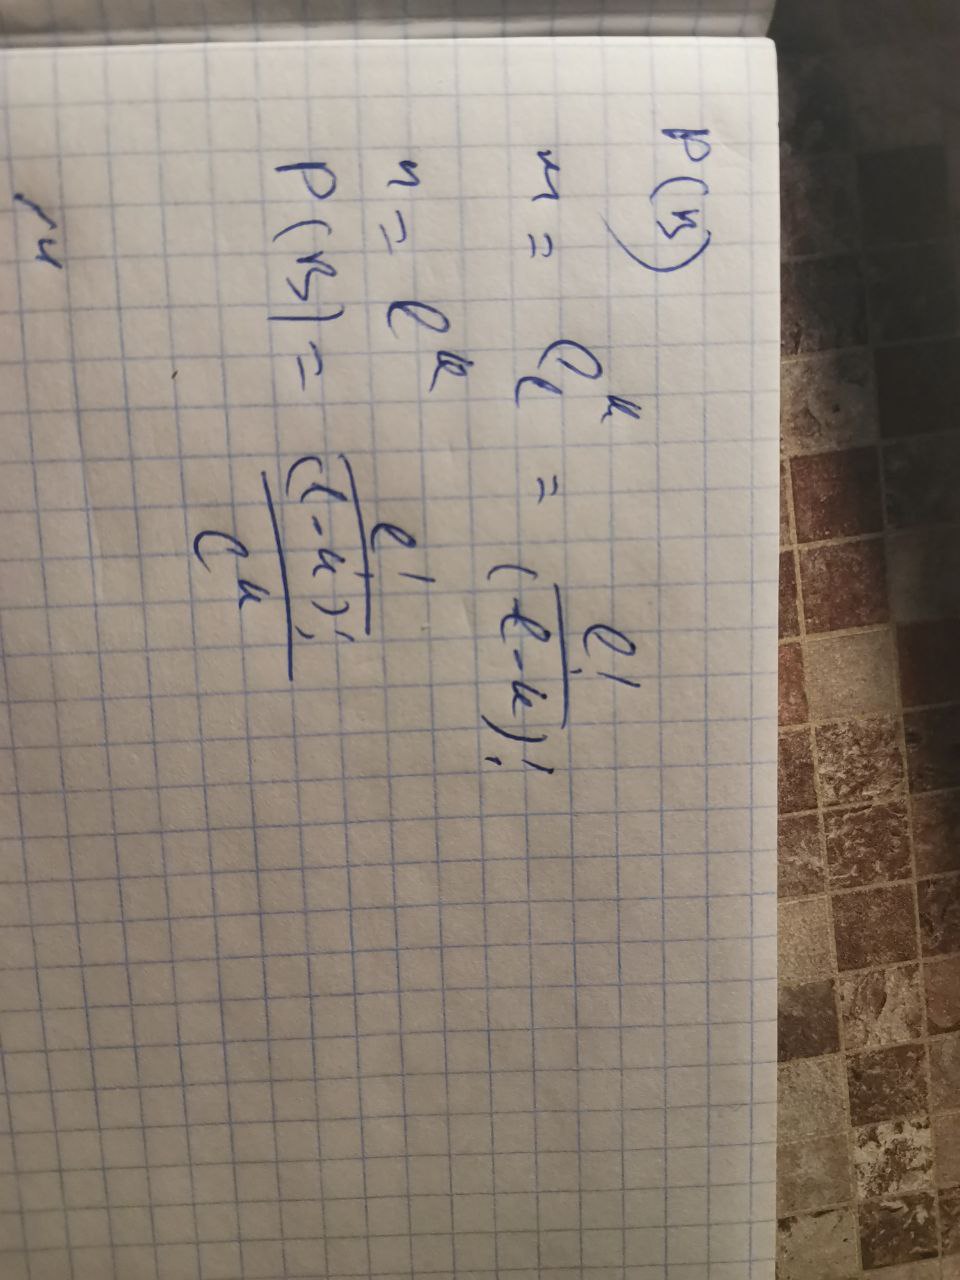 P(B)
m = C_l^k = l! / (l-k)!
n = l^k
P(B) = (l! / (l-k)!) / l^k